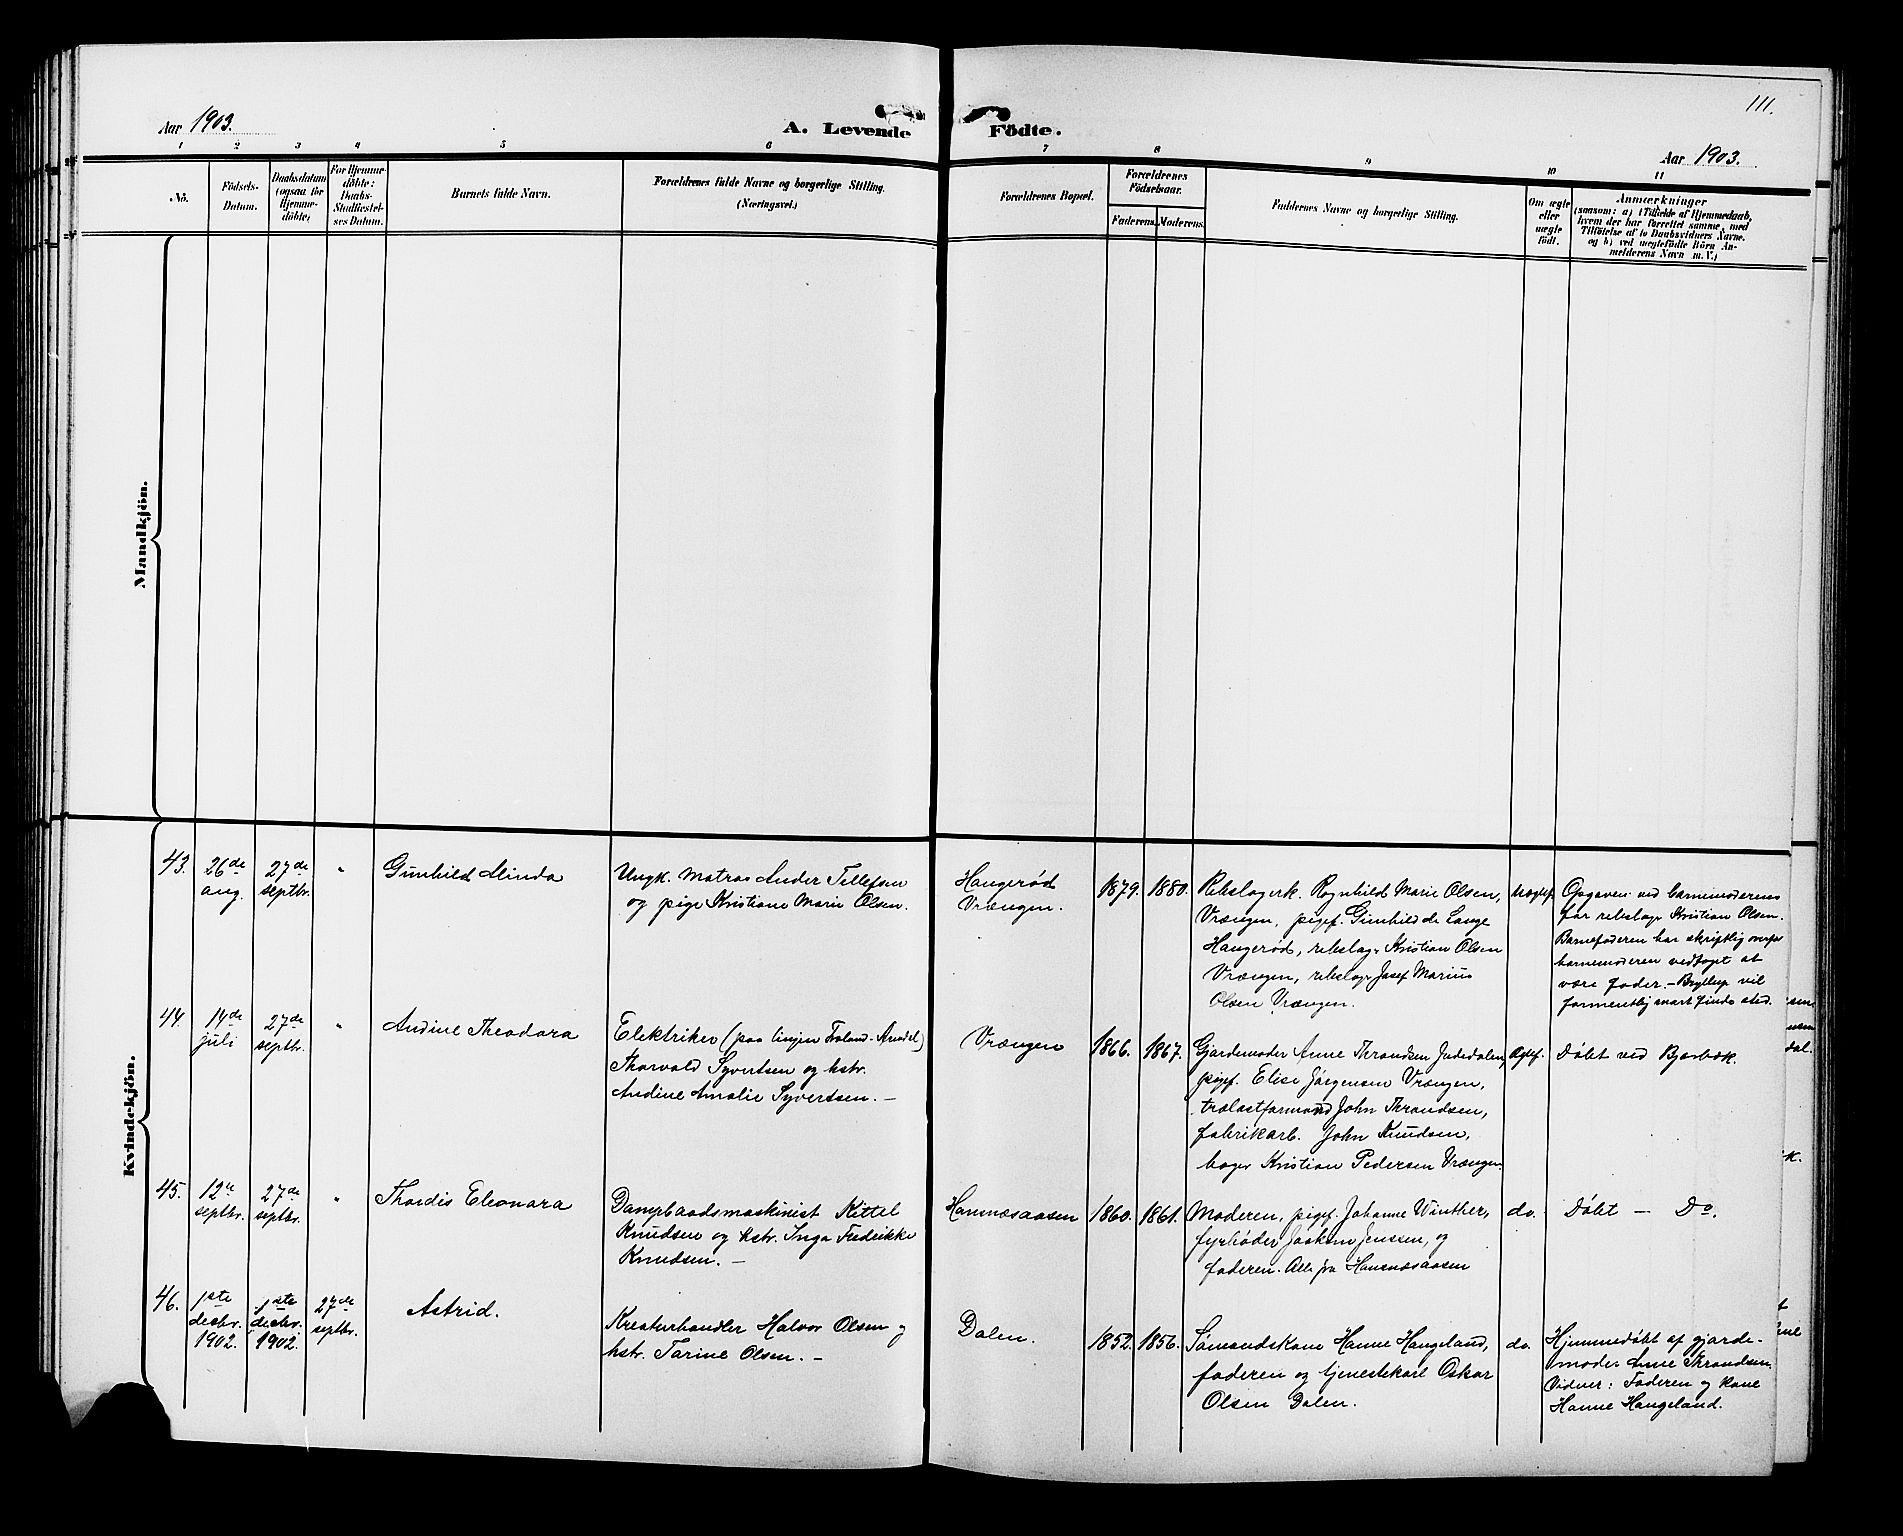 111.
Aar 1903.
A. Levende Födte.
Aar 1903.
1 2 3 4 5 6 7 8 9 10 11
No.
Födsels-
Datum.
Daabsdatum
(ogsaa for
Hjemme-
döbte)
For Hjemme-
döbte:
Daabs-
Stadfæstel-
ses Datum.
Barnets fulde Navn.
Forældrenes fulde Navne og borgerlige Stilling.
(Næringsvei.)
Forældrenes Bopæl.
Forældrenes
Födselsaar.
Faderens. Moderens.
Faddernes Navne og borgerlige Stilling.
Om ægte
eller
uægte
födt.
Anmærkninger
(saasom: a) i Tilfælde af Hjemmedaab,
hvem der har forrettet samme, med
Tilföielse af to Daabsvidners Navne.
og b) ved uægtefödte Börn An-
melderens Navn m.V.)
Mandkjön.
Kvindekjön.
43.
26de
aug.
27de
septbr.
"
Gunhild Minda
Ungk. matros Ander Tellefsen
og pige Kristiane Marie Olsen.
Haugeröd
Vrængen.
1879. 1880.
Rebslagerk. Ragnhild Marie Olsen,
Vrængen, pigef. Gunhild de Lange
Haugerød, rebslag. Kristian Olsen
Vrængen, rebslag. Josef Marius
Olsen Vrængen.
Uægtef.
Opgaven ved barnemoderens
far rebslag. Kristian Olsen.
Barnefaderen har skriftlig overfor
barnemoderen vedtaget at
være fader. – Bryllup vil
formentlig snart finde sted.
44.
14de
juli
27de
septbr.
"
Andine Theodora
Elektriker (paa linjen Froland-Arendal)
Thorvald Syvertsen og hstr.
Andine Amalie Syvertsen. –
Vrængen
1866. 1867.
Gjordemoder Anne Throndsen Judedalen,
pigef. Elise Jørgensen Vrængen,
trælastformand John Throndsen,
fabrikarb. John Knudsen,
bager Kristian Pedersen Vrængen.
Ægtef.
Døbt ved Bjørbæk.
45.
12te
septbr.
27de
septbr.
"
Thordis Eleonara
Dampbaadsmaskinist Kittel
Knudsen og hstr. Inga Fredrikke
Knudsen. –
Hansnæsaasen
1860. 1861.
Moderen, pigef. Johanne Winther,
fyrbøder Joakim Jenssen, og
faderen. Alle fra Hansnæsaasen
do.
Døbt – Do.
46.
1ste
decbr.
1902.
1ste
decbr.
1902.
27de
septbr.
Astrid.
Kreaturhandler Halvor Olsen og
hstr. Tarine Olsen. –
Dalen.
1852. 1856.
Sømandskone Hanne Haugeland,
faderen og tjenestekarl Oskar
Olsen Dalen.
do.
Hjemmedøbt af gjorde-
moder Anne Throndsen.
Vidner: Faderen og kone
Hanne Haugeland.